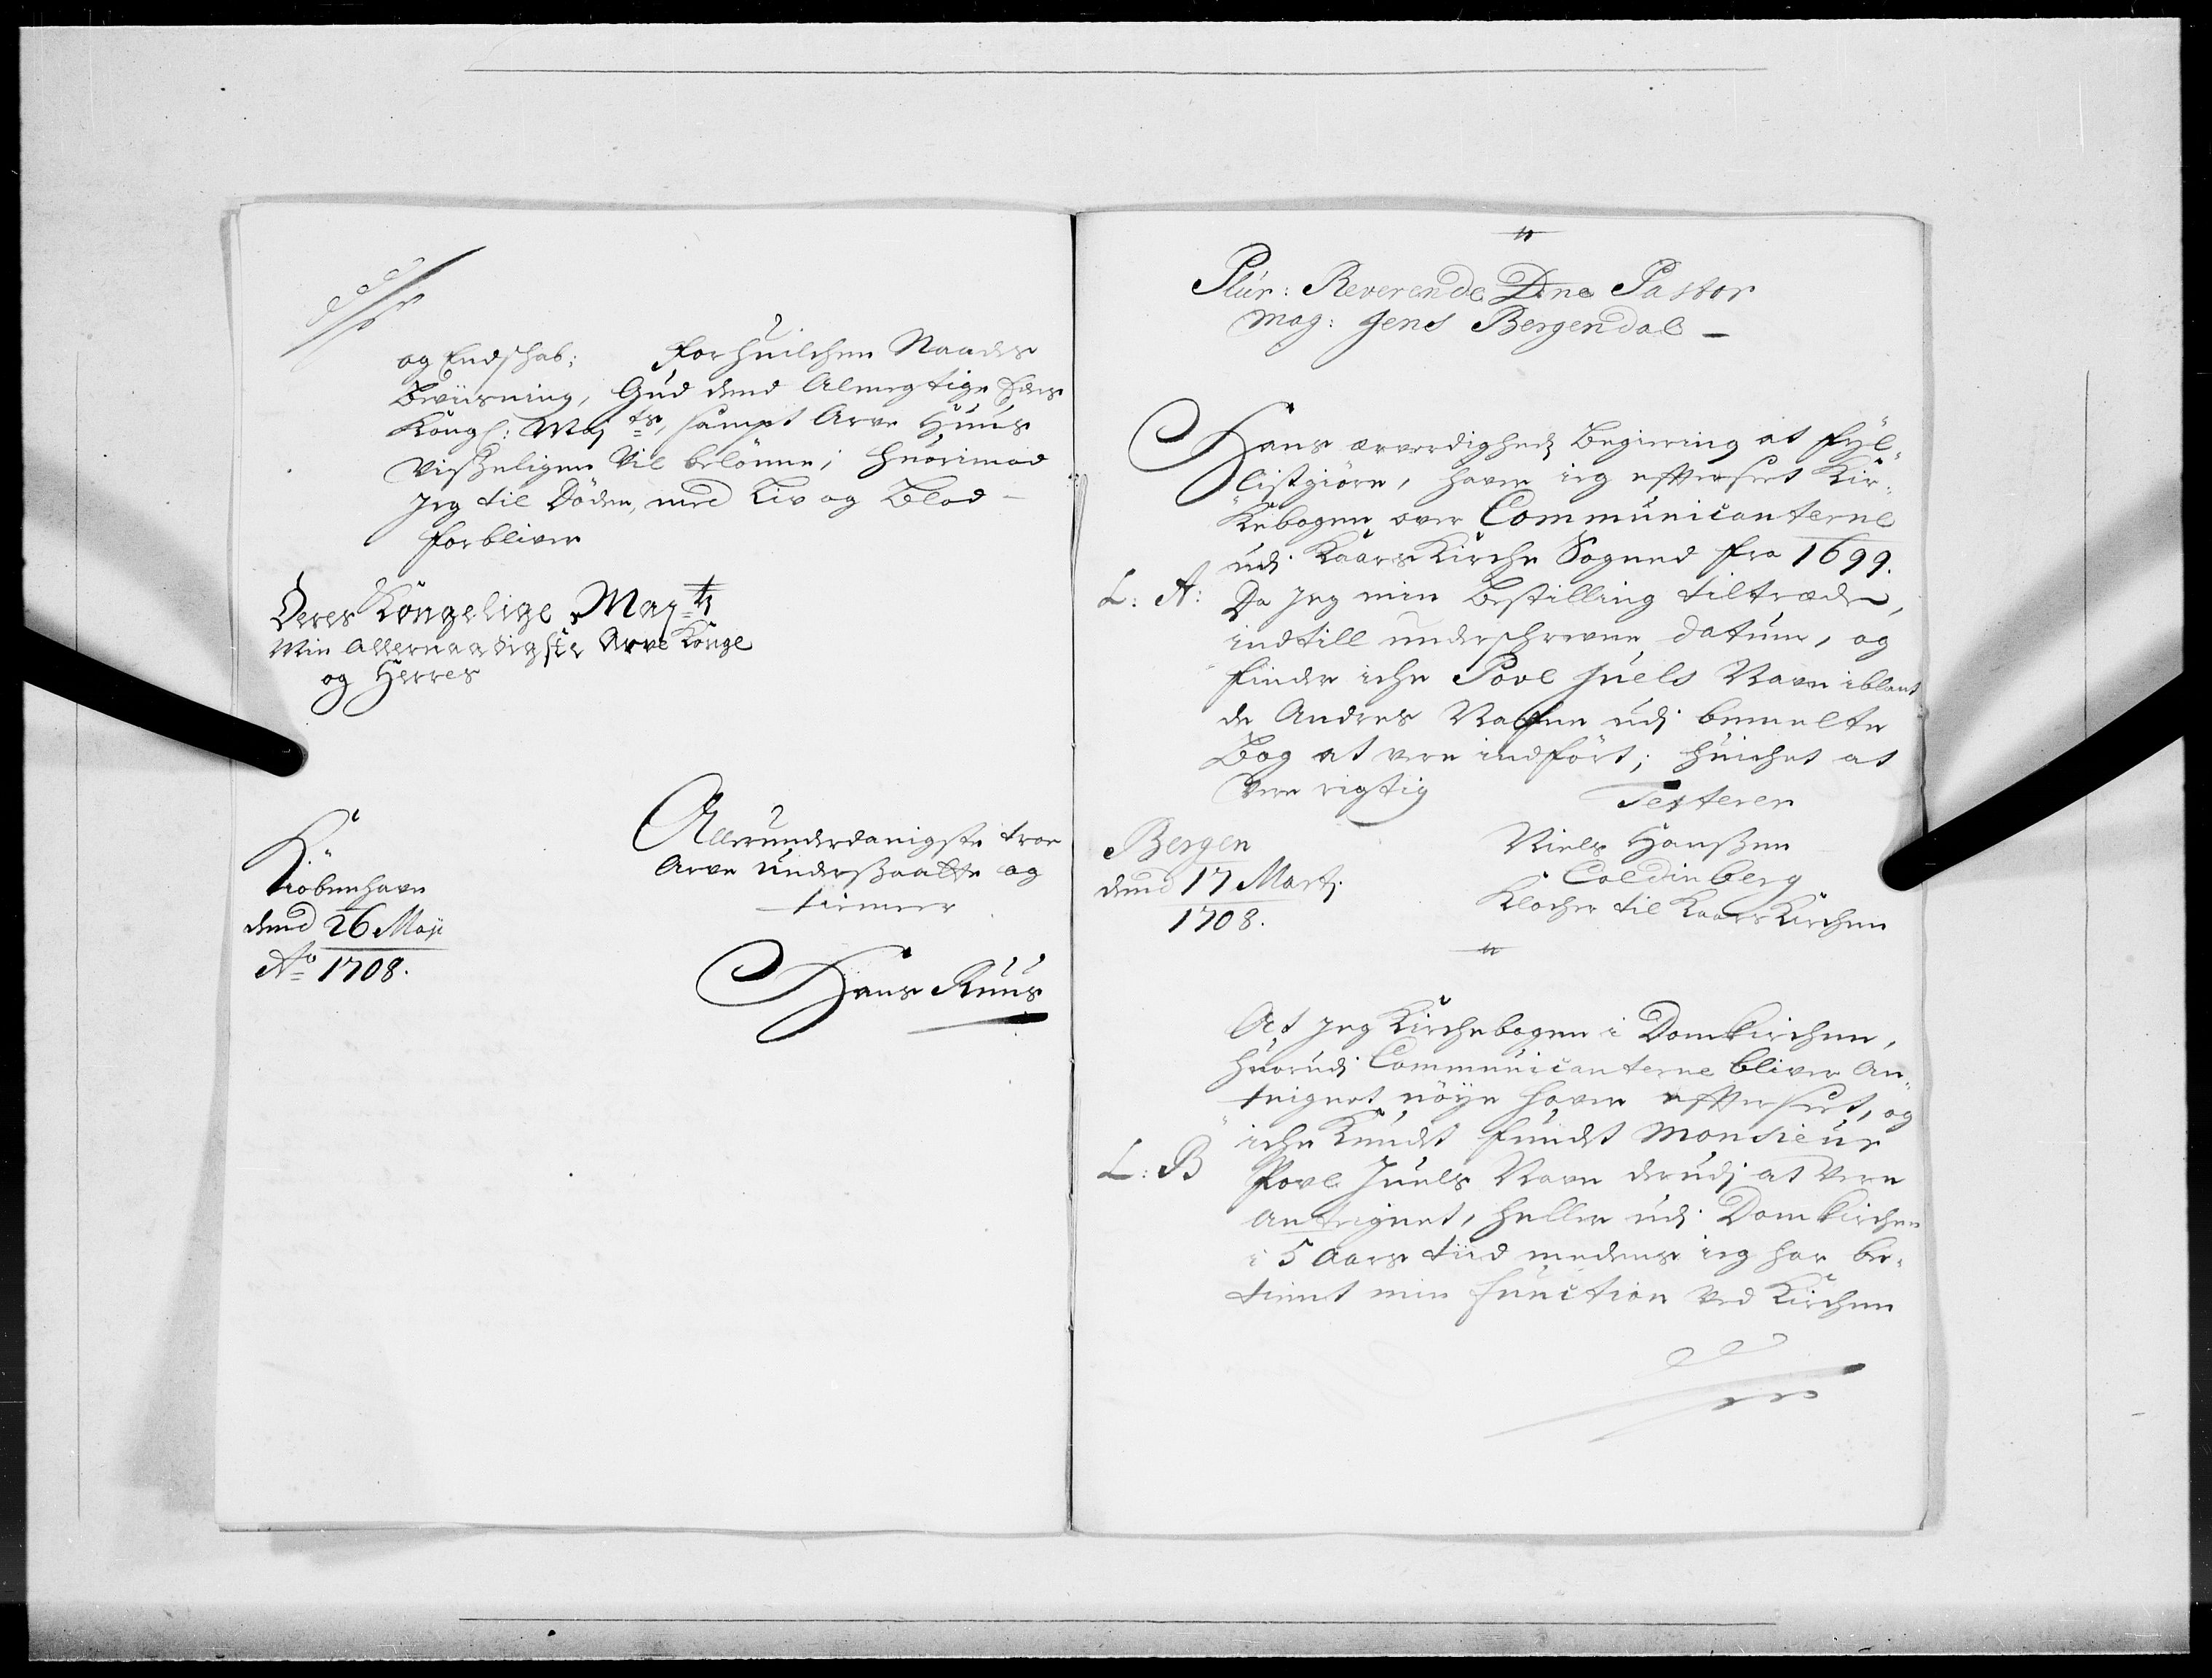 og Endskab; forhuilchen Naades
Beviisning, Gud dend Almegtige Hans
Kongl: Maj ts, sampt Arve Huus
visseligen vil belønne; huorimod
Jeg til Døden, med Liv og Blod –
forbliver
Deres Kongelige May ts
Min Allernaadigste Arve Konge
og Herres
Allerunderdanigste troe
Arve undersaatte og
tienner
Kiøbenhavn
dend 26 Maji
Ao 1708.
Hans Ruus
Plur: Reverende Dne Pastor
Mag: Jens Bergendal –
Hans ærverdigheds Begiering at fyl„
listgiøre, haver ieg effterseet Kir„
kebogen over Communicanterne
udj Kaars Kirche Sogned fra 1699.
L: A: Da jeg min Bestilling tiltræde,
indtill underschrevne datum, og
finder iche Povl Juels Navn iblant
de Andres Nafne udj bemelte
Bog at vere indført; huichet at
vere rigtig
Testerer
Bergen
dend 17 Martj.
1708.
Niels Hanssen
Coldinberg
Klocher til Kaars Kirchen
At jeg Kirchebogen i Domkirchen,
huorudj Communicanterne bliver An„
teignet nøye haver effterseet, og
iche kundet fundet Monsieur
L: B Povl Juels Navn derudj at vere
anteignet, heller udj Domkirchen
i 5 Aars tiid medens ieg har be„
tient min function ved Kirchen